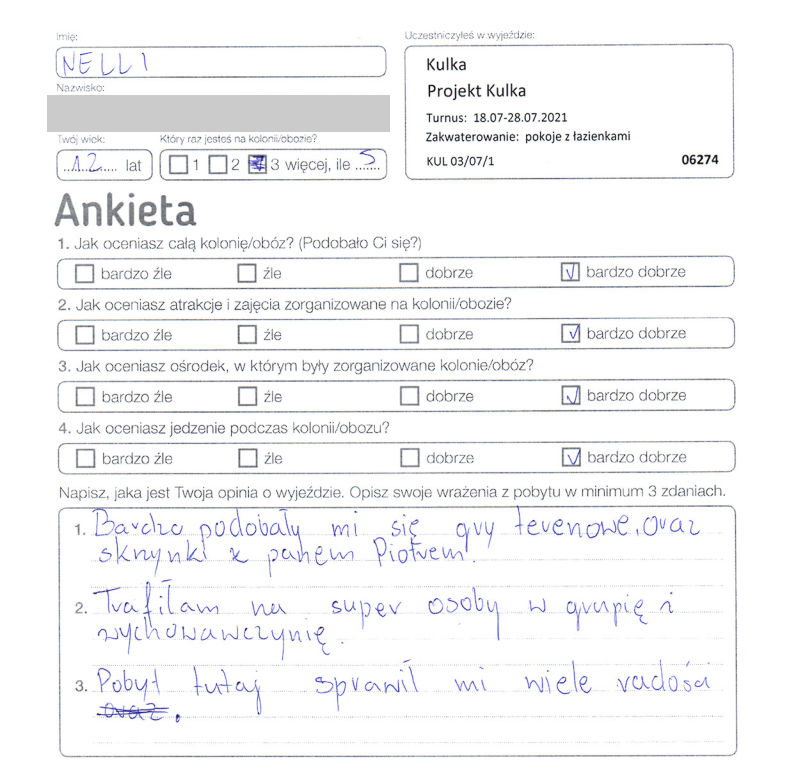 Imię:
NELLI
Nazwisko:
Twój wiek:
12 lat
Który raz jesteś na kolonii/obozie?
1 2 3 więcej, ile 5
Uczestniczyłeś w wyjeździe:
Kulka
Projekt Kulka
Turnus: 18.07-28.07.2021
Zakwaterowanie: pokoje z łazienkami
KUL 03/07/1 06274
Ankieta
1. Jak oceniasz całą kolonię/obóz? (Podobało Ci się?)
bardzo źle źle dobrze bardzo dobrze
2. Jak oceniasz atrakcje i zajęcia zorganizowane na kolonii/obozie?
bardzo źle źle dobrze bardzo dobrze
3. Jak oceniasz ośrodek, w którym były zorganizowane kolonie/obóz?
bardzo źle źle dobrze bardzo dobrze
4. Jak oceniasz jedzenie podczas kolonii/obozu?
bardzo źle źle dobrze bardzo dobrze
Napisz, jaka jest Twoja opinia o wyjeździe. Opisz swoje wrażenia z pobytu w minimum 3 zdaniach.
1. Bardzo podobały mi się gry terenowe, oraz
skrzynki z panem Piotrem.
2. Trafiłam na super osoby w grupię i
wychowawczynię.
3. Pobyt tutaj sprawił mi wiele radości
oraz.